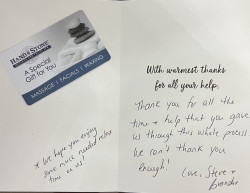 HAND & STONE
A Special
Gift for You
MASSAGE | FACIALS | WAXING
* We hope you enjoy
some much needed relax
time on us!
With warmest thanks
for all your help.
Thank you for all the
time & help that you gave
us through this whole process.
We can't thank you
enough!
Love, Steve &